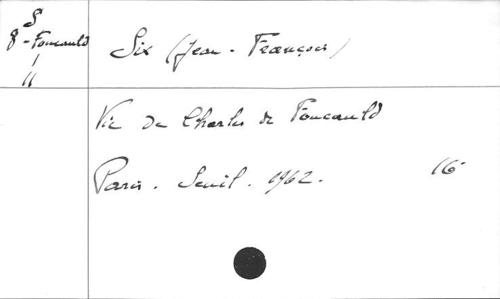 S
8 - Foucauld
1
11
Six (Jean-François)
Vie de Charles de Foucauld
Paris. Seuil. 1962. 16°